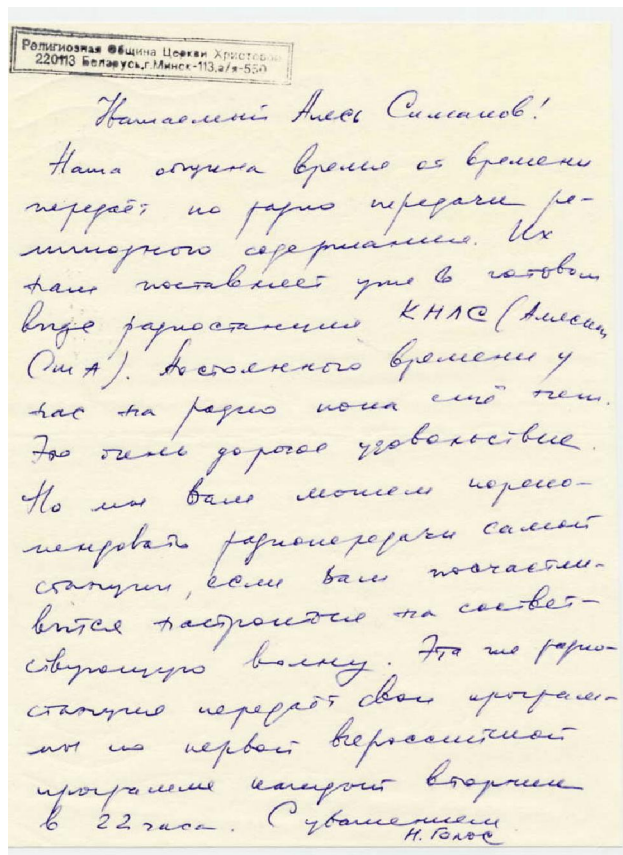 Религиозная Община Церкви Христовой
220113 Беларусь, г. Минск-113, а/я-550
Уважаемый Алесь Симаков!
Наша община время от времени
передаёт по радио передачи ре-
лигиозного содержания. Их
нам поставляет уже в готовом
виде радиостанция КНЛС (Аляска,
США). Постоянного времени у
нас на радио пока ещё нет.
Это очень дорогое удовольствие.
Но мы Вам можем пореко-
мендовать радиопередачи самой
станции, если Вам посчастли-
вится настроиться на соответ-
ствующую волну. Эта же радио-
станция передаёт свои програм-
мы по первой всероссийской
программе каждый вторник
в 22 часа. С уважением
Н. Голос